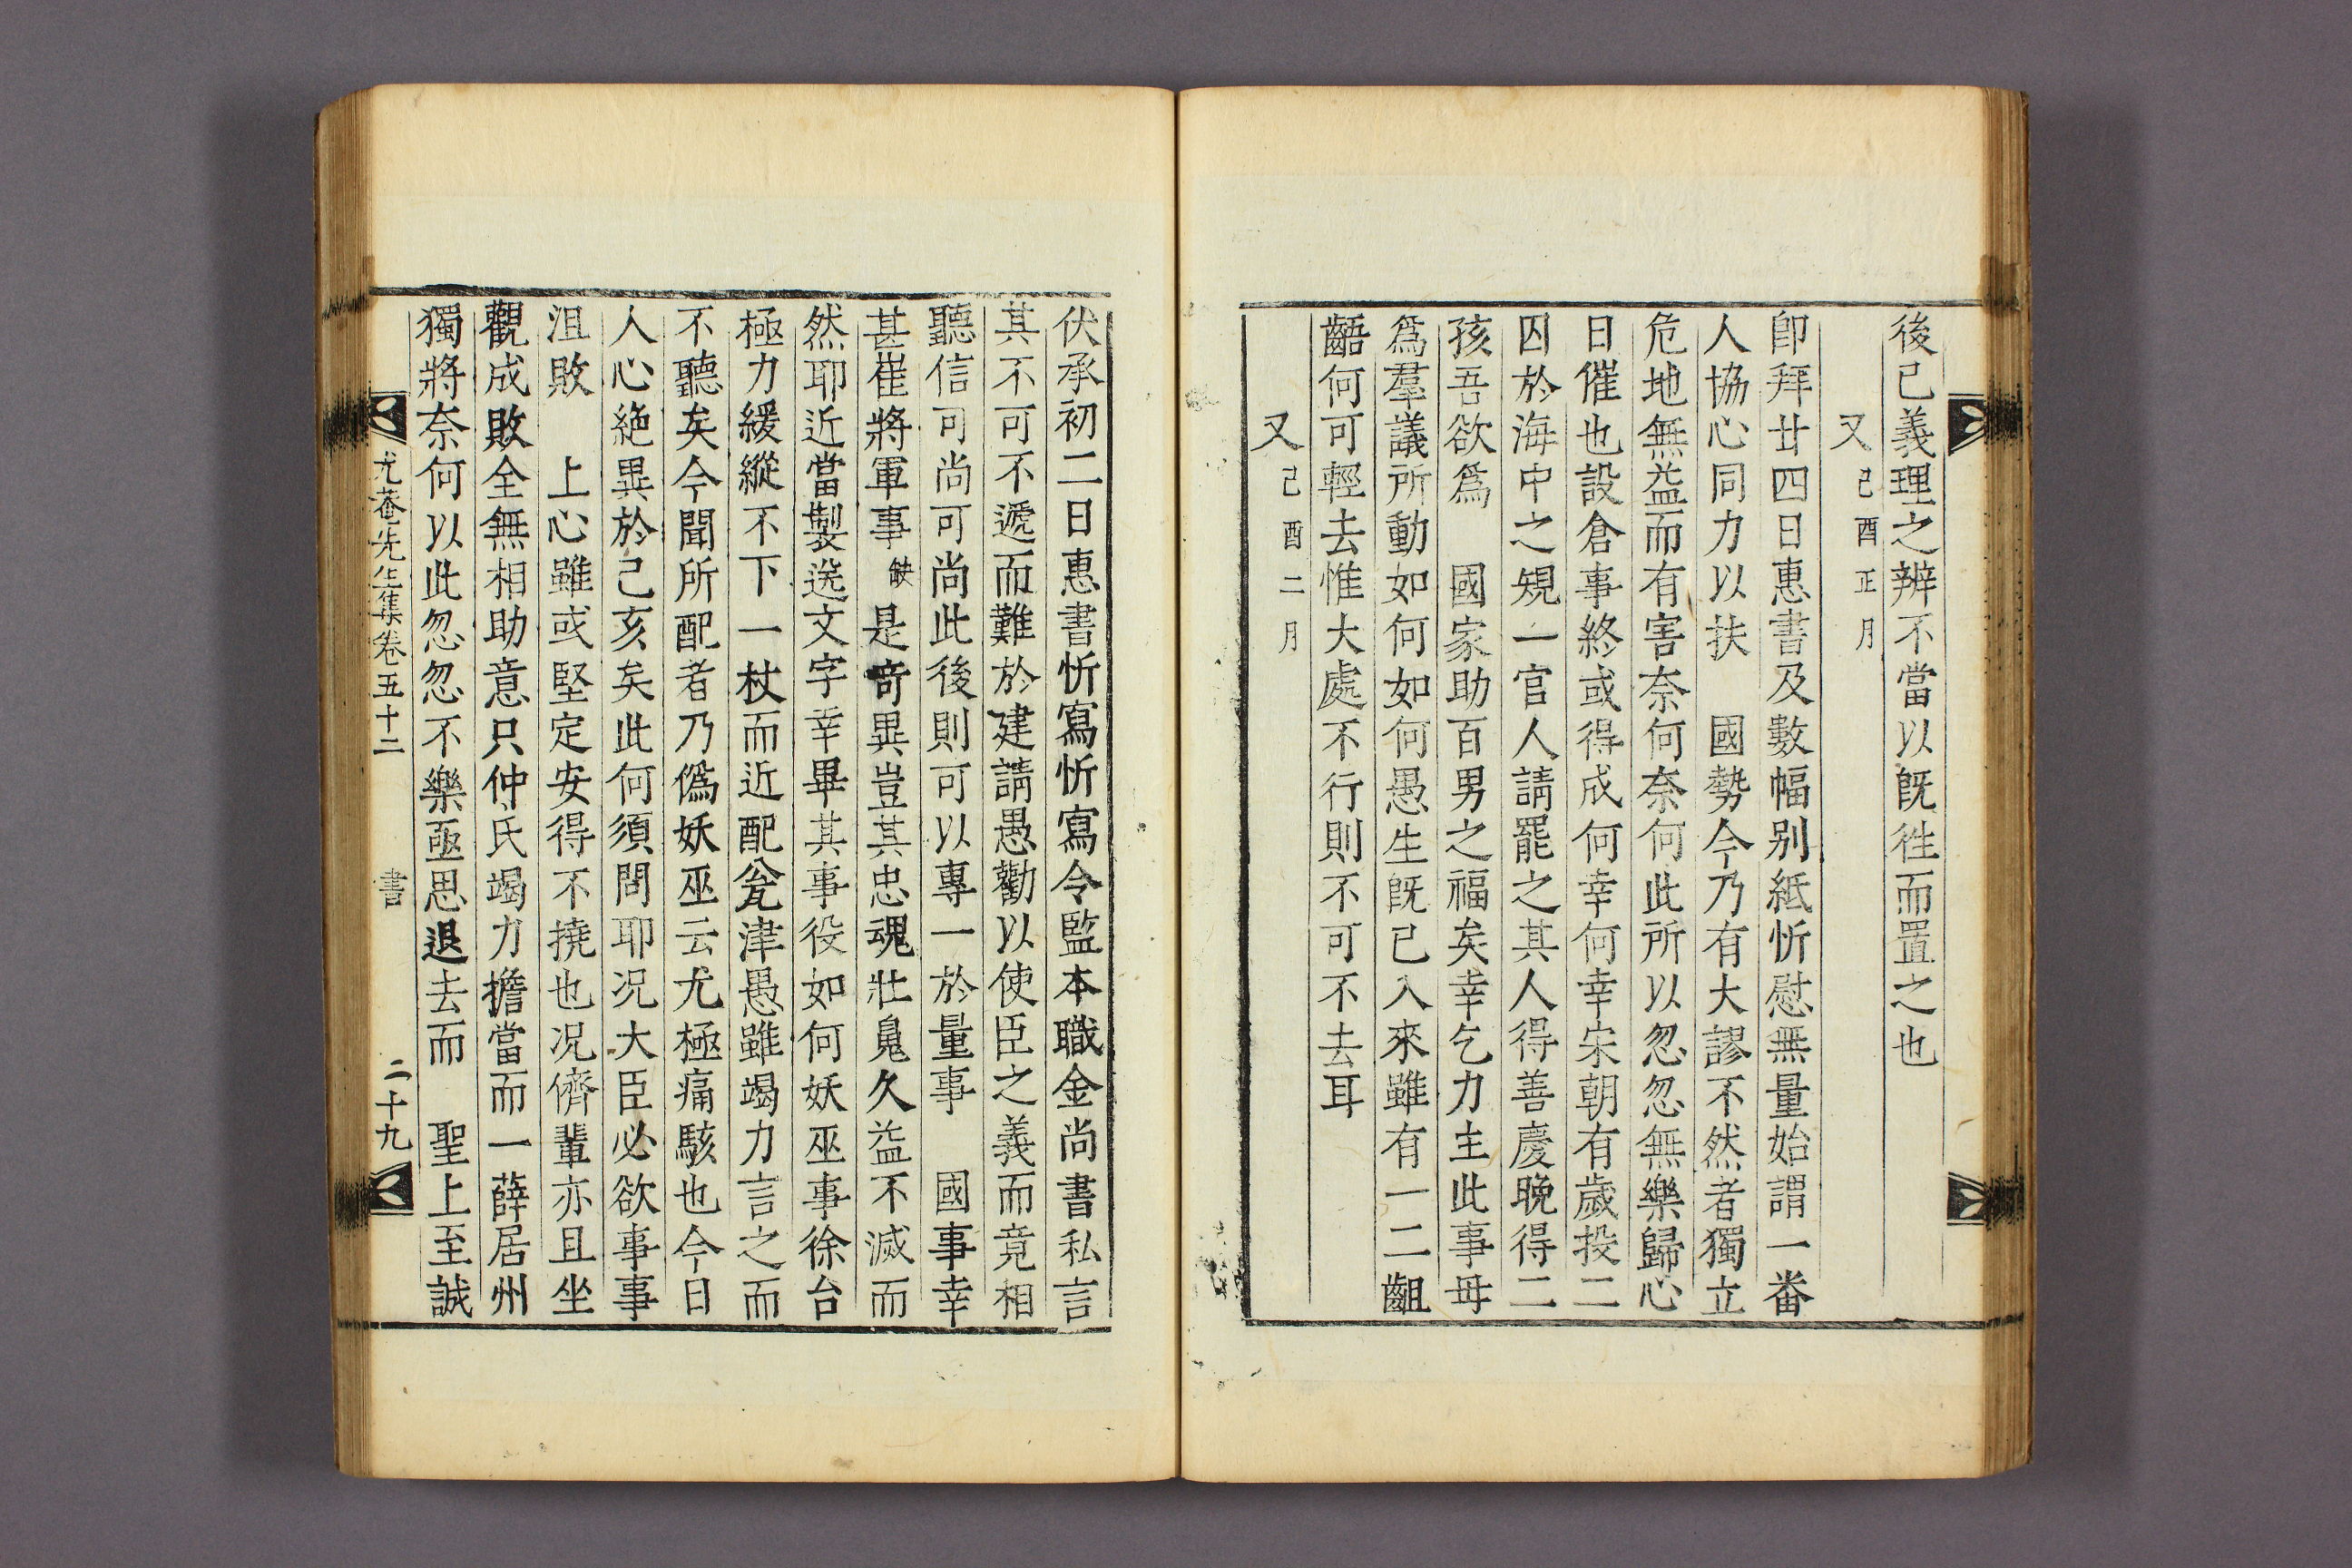 後已義理之辨不當以旣徃而置之也
又己酉正月
卽拜廿四日惠書及數幅別紙忻慰無量始謂一番
人協心同力以扶 國勢今乃有大謬不然者獨立
危地無益而有害奈何奈何此所以忽忽無樂歸心
日催也設倉事終或得成何幸何幸宋朝有歲投二
囚於海中之䂓一官人請罷之其人得善慶晚得二
孩吾欲爲 國家助百男之福矣幸乞力主此事毋
爲羣議所動如何如何愚生旣已入來雖有一二齟
齬何可輕去惟大處不行則不可不去耳
又己酉二月
伏承初二日惠書忻寫忻寫令監本職金尚書私言
其不可不遞而難於建請愚勸以使臣之義而竟相
聽信可尚可尚此後則可以專一於量事 國事幸
甚崔將軍事缺是奇異豈其忠魂壯鬼久益不滅而
然耶近當製送文字幸畢其事役如何妖巫事徐台
極力緩縱不下一杖而近配瓮津愚雖竭力言之而
不聽矣今聞所配者乃僞妖巫云尤極痛駭也今日
人心絶異於己亥矣此何須問耶况大臣必欲事事
沮敗 上心雖或堅定安得不撓也况儕輩亦且坐
觀成敗全無相助意只仲氏竭力擔當而一薛居州
獨將奈何以此忽忽不樂亟思退去而 聖上至誠
尤菴先生集卷五十二 書 二十九